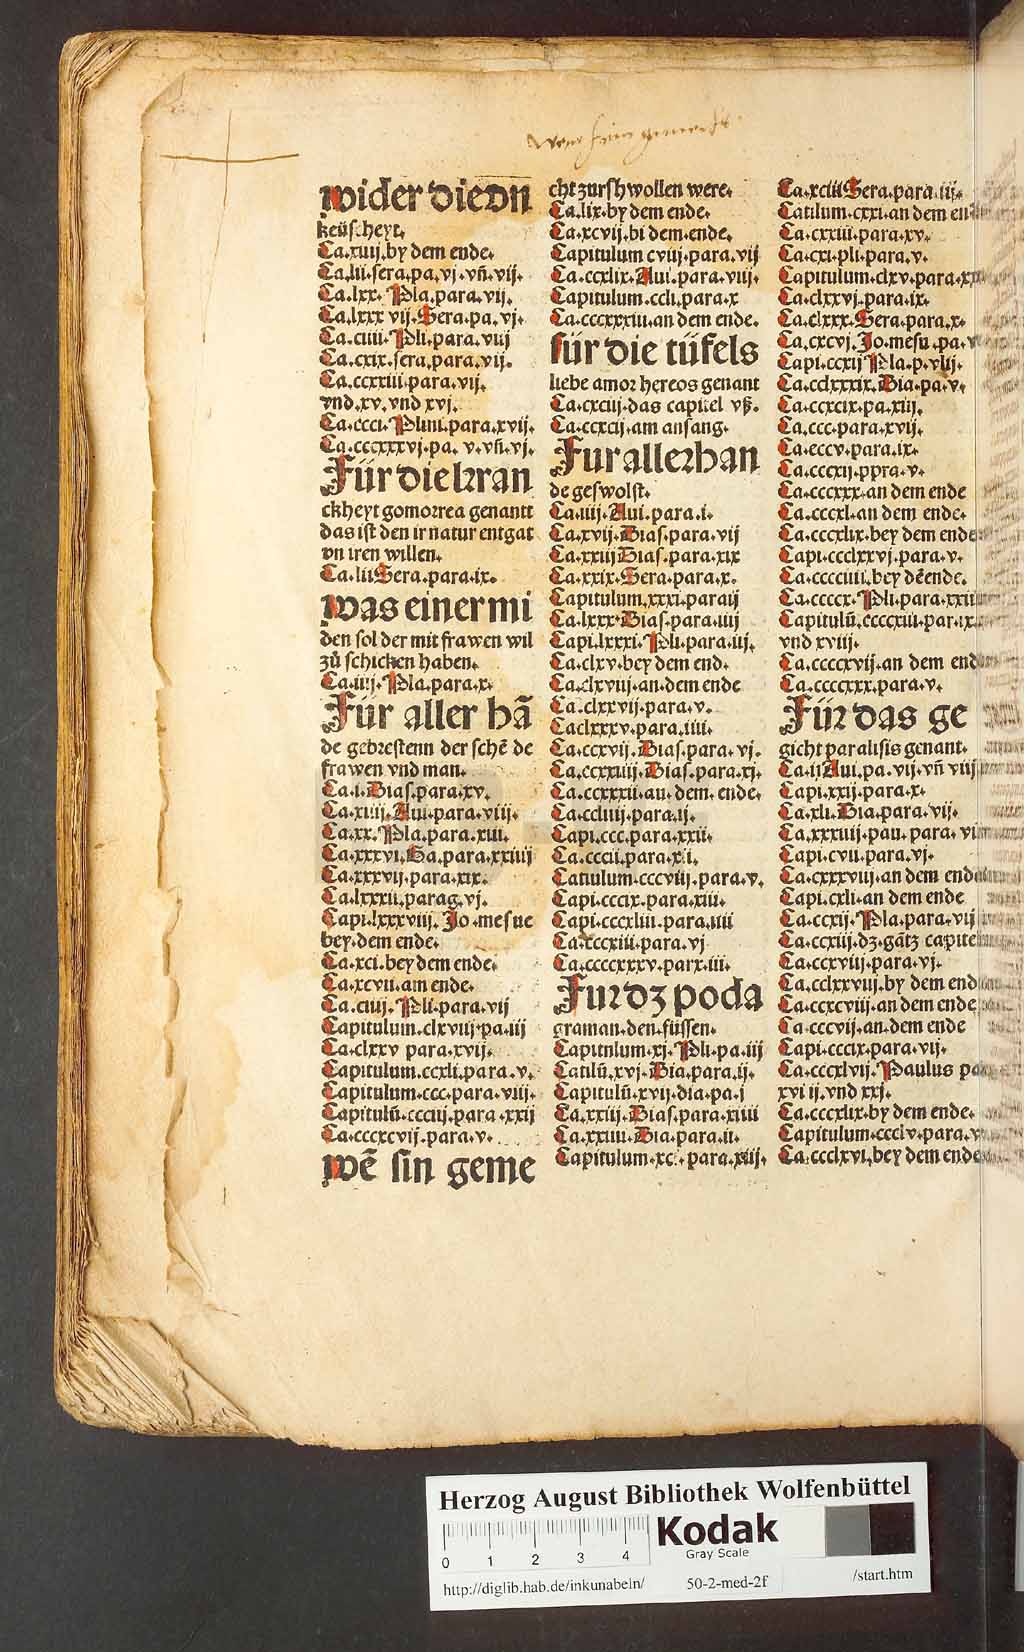 wider die vn
keüscheyt.
Ca.xiiij.by dem ende.
Ca.lii.sera.pa.vj.vñ.vij.
Ca.lxx. Pla.para.vij.
Ca.lxxx vij.Sera.pa.vj.
Ca.ciiii.Pli.para.viij
Ca.cxix.sera.para.vij.
Ca.ccxxiii.para.vij.
vnd.xv.vnd xvj.
Ca.ccci.Plini.para.xvij.
Ca.cccxxxvj.pa. v.vñ.vj.
Für die kran
ckheyt gomorrea genantt
das ist den ir natur entgat
vn iren willen.
Ca.lii Sera.para.ix.
was einer mi
den sol der mit frawen wil
zů schicken haben.
Ca.iiij.Pla.para.x.
Für aller hā
de gebrestenn der schē de
frawen vnd man.
Ca.i.Dias.para.xv.
Ca.xiiij.Aui.para.viij.
Ca.xx.Pla.para.xiii.
Ca.xxxvi.Ga.para.xxiiij
Ca.xxxvij.para.xix.
Ca.lxxxii.parag.vj.
Capi.lxxxviij.Jo.mesue
bey.dem ende.
Ca.xci.bey dem ende.
Ca.xcvii.am ende.
Ca.ciuj.Pli.para.vij
Capitulum.clxviij.pa.iij
Ca.clxxv para.xvij.
Capitulum.ccxli.para.v.
Capitulum.ccc.para.viij.
Capitulū.ccciij.para.xxij
Ca.cccxcvij.para.v.
wē sin geme
wem sein gemecht
cht zurschwollen were.
Ca.lix.by dem ende.
Ca.xcvij.bi dem.ende.
Capitulum cviij.para.vij
Ca.ccxlix.Aui.para.viij.
Capitulum.ccli.para.x
Ca.cccxxxiii.an dem ende.
für die tüfels
liebe amor hereos genant
Ca.cxciij.das capitel vß.
Ca.ccxcij.am anfang.
Fur allerhan
de geswolst.
Ca.iiij.Aui.para.i.
Ca.xvij.Dias.para.vij
Ca.xxiij Dias.para.xix
Ca.xxix.Sera.para.x.
Capitulum.xxxi.para ij
Ca.lxxx.Dias.para.iiij
Capi.lxxxi.Pli.para.iij.
Ca.clxv.bey dem end.
Ca.clxviij.an.dem ende
Ca.clxxvij.para.v.
Caclxxxv.para.iiii.
Ca.ccxvij.Dias.para.vj.
Ca.ccxxiiij.Dias.para.xj.
Ca.ccxxxii.an.dem.ende.
Ca.ccliiij.para.ij.
Capi.ccc.para.xxii.
Ca.cccii.para.xii.
Catiulum.cccviij.para.v.
Capi.cccix.para.xiii.
Capi.cccxliii.para.iiii
Ca.cccxiii.para.vj
Ca.ccccxxxv.parx.iii.
Fur dz poda
graman.den.füssen.
Capitnlum.xj.Pli.pa.iij
Catilū.xvj.Dia.para.ij.
Capitulū.xvij.dia.pa.j
Ca.xxiij.Dias.para.xiiii
Ca.xxiiii.Dia.para.ii.
Capitulum.xc.para.xiij.
Ca.xciii Sera.para.iij.
Catilum.cxxi.an dem
Ca.cxxiii.para.xv.
Ca.cxi.pli.para.v.
Capitulum.clxv.para.
Ca.clxxvj.para.ix.
Ca.clxxx.Sera.para.x.
Ca.cxcvj.Jo.mesu.pa.v
Capi.ccxij Pla.p.vlij.
Ca.cclxxxix.Dia.pa.v.
Ca.ccxcix.pa.xiij.
Ca.ccc.para.xvij.
Ca.eccv.para.ix.
Ca.cccxij.ppra.v.
Ca.cccxxx.an dem ende
Ca.cccxl.an dem ende.
Ca.cccxlix.bey dem ende
Capi.ccclxxvj.para.v.
Ca.cccciiii.bey dēende.
Ca.ccccx.Pli.para.xxii
Capitulū.ccccxiii.par.ix.
vnd xviij.
Ca.ccccxvij.an dem end
Ca.ccccxxx.para.v.
Für das ge
gicht paralisis genant.
Ca.ij Aui.pa.vij.vñ viij
Capi.xxij.para.x.
Ca.xli.Dia.para.vij.
Ca.xxxiiij.pau.para.
Capi.cvii.para.vj.
Ca.cxxxviij.an dem ende
Capi.cxli.an dem ende
Ca.ccxij.Pla.para.vij
Ca.ccxiij.dz.gātz capite
Ca.ccxviij.para.vj.
Ca.cclxxviij.by dem end
Ca.ccxcviii.an dem ende
Ca cccvij.an.dem ende
Capi.cccix.para.vij.
Ca.cccxlvij.Paulus
xvi ij.vnd xxj.
Ca.cccxlix.by dem ende.
Capitulum.ccclv.para.v
Ca.ccclxvi.bey dem ende
Herzog August Bibliothek Wolfenbüttel
0 1 2 3 4
Kodak
Gray Scale
http://diglib.hab.de/inkunabeln/ 50-2-med-2f /start.htm